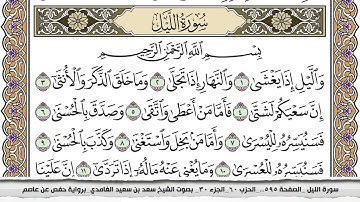 سُورَةُ اللَّيْلِ
بِسْمِ اللَّهِ الرَّحْمَٰنِ الرَّحِيمِ
وَاللَّيْلِ إِذَا يَغْشَىٰ ١ وَالنَّهَارِ إِذَا تَجَلَّىٰ ٢ وَمَا خَلَقَ الذَّكَرَ وَالْأُنثَىٰ ٣
إِنَّ سَعْيَكُمْ لَشَتَّىٰ ٤ فَأَمَّا مَنْ أَعْطَىٰ وَاتَّقَىٰ ٥ وَصَدَّقَ بِالْحُسْنَىٰ ٦
فَسَنُيَسِّرُهُ لِلْيُسْرَىٰ ٧ وَأَمَّا مَن بَخِلَ وَاسْتَغْنَىٰ ٨ وَكَذَّبَ بِالْحُسْنَىٰ ٩
فَسَنُيَسِّرُهُ لِلْعُسْرَىٰ ١٠ وَمَا يُغْنِي عَنْهُ مَالُهُ إِذَا تَرَدَّىٰ ١١ إِنَّ عَلَيْنَا
سورة الليل _الصفحة ٥٩٥_ الحزب ٦٠_ الجزء ٣٠_ بصوت الشيخ سعد بن سعيد الغامدي_ برواية حفص عن عاصم